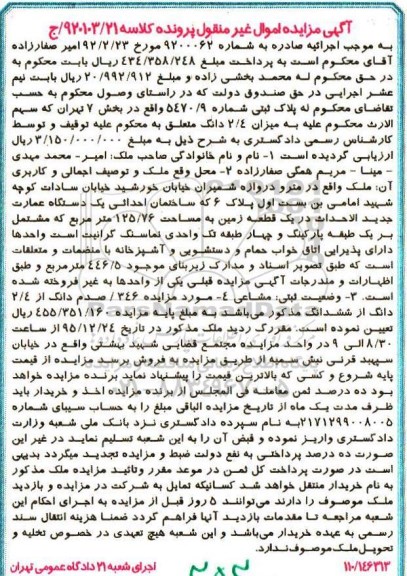 آگهی مزایده اموال غیر منقول پرونده کلاسه ۹۲۰۱۰۳/۲۱/ج
به موجب اجرائیه صادره به شماره ۹۲۰۰۰۶۲ مورخ ۹۲/۲/۲۳ امیر صفارزاده
آقای محکوم است به پرداخت مبلغ ۴۳۴/۳۵۸/۲۴۸ ریال بابت محکوم به
در حق محکوم له محمد بخشی زاده و مبلغ ۲۰/۹۹۲/۹۱۲ ریال بابت نیم
عشر اجرایی در حق صندوق دولت که در راستای وصول محکوم به حسب
تقاضای محکوم له پلاک ثبتی شماره ۵۴۷۰/۹ واقع در بخش ۷ تهران که سهم
الارث محکوم علیه به میزان ۲/۴ دانگ متعلق به محکوم علیه توقیف و توسط
کارشناس رسمی دادگستری به شرح ذیل به مبلغ ۳/۱۵۰/۰۰۰/۰۰۰ ریال
ارزیابی گردیده است ۱- نام و نام خانوادگی صاحب ملک: امیر- محمد مهدی
- مینا - مریم همگی صفارزاده ۲- محل وقع ملک و توصیف اجمالی و کاربری
آن: ملک واقع در مترو دروازه شمیران خیابان خورشید خیابان سادات کوچه
شهید امامی بن بست اول پلاک ۶ که ساختمان احداثی یک دستگاه عمارت
جدید الاحداث در یک قطعه زمین به مساحت ۱۲۵/۷۶ متر مربع که مشتمل
بر یک طبقه پارکینگ و چهار طبقه تک واحدی نماسنگ گرانیت است واحدها
دارای پذیرایی اتاق خواب حمام و دستشویی و آشپزخانه با منضمات و متعلقات
است که طبق تصویر اسناد و مدارک زیربنای موجود ۴۴۶/۵ مترمربع و طبق
اظهارات و مندرجات آگهی مزایده قبلی یکی از واحدها به غیر فروخته شده
است. ۳- وضعیت ثبتی: مشاعی ۴- مورد مزایده ۳۴۶ / صدم دانگ از ۲/۴
دانگ از ششدانگ مذکور می‌باشد به مبلغ پایه مزایده ۴۵۵/۳۵۱/۱۶۰ ریال
تعیین نموده است. مقرر گردید ملک مذکور در تاریخ ۹۵/۱۲/۲۴ از ساعت
۸/۳۰ الی ۹ در واحد مزایده مجتمع قضایی شهید بهشتی واقع در خیابان
سپهبد قرنی نبش سمیه از طریق مزایده به فروش برسد مزایده از قیمت
پایه شروع و کسی که بالاترین قیمت را پیشنهاد نماید برنده مزایده خواهد
بود ده درصد ثمن معامله فی المجلس از برنده مزایده اخذ و خریدار باید
ظرف مدت یک ماه از تاریخ مزایده الباقی مبلغ را به حساب سیبای شماره
۲۱۷۱۲۹۹۰۰۸۰۰۵ به نام سپرده دادگستری نزد بانک ملی شعبه وزارت
دادگستری واریز نموده و قبض آن را به این شعبه تسلیم نماید در غیر این
صورت ده درصد پرداختی به نفع دولت ضبط و مزایده تجدید میگردد بدیهی
است در صورت پرداخت کل ثمن در موعد مقرر وتائید مزایده ملک مذکور
به نام خریدار منتقل خواهد شد کسانیکه تمایل به شرکت در مزایده و بازدید
ملک موصوف را دارند می‌توانند ۵ روز قبل از مزایده به اجرای احکام این
شعبه مراجعه تا مقدمات بازدید آنها فراهم گردد ضمنا هزینه انتقال سند
رسمی به عهده خریدار می‌باشد و این شعبه هیچ تعهدی در خصوص تخلیه و
تحویل ملک موصوف ندارد.
۱۱۰/۱۴۶۲۱۳ اجرای شعبه ۲۱ دادگاه عمومی تهران